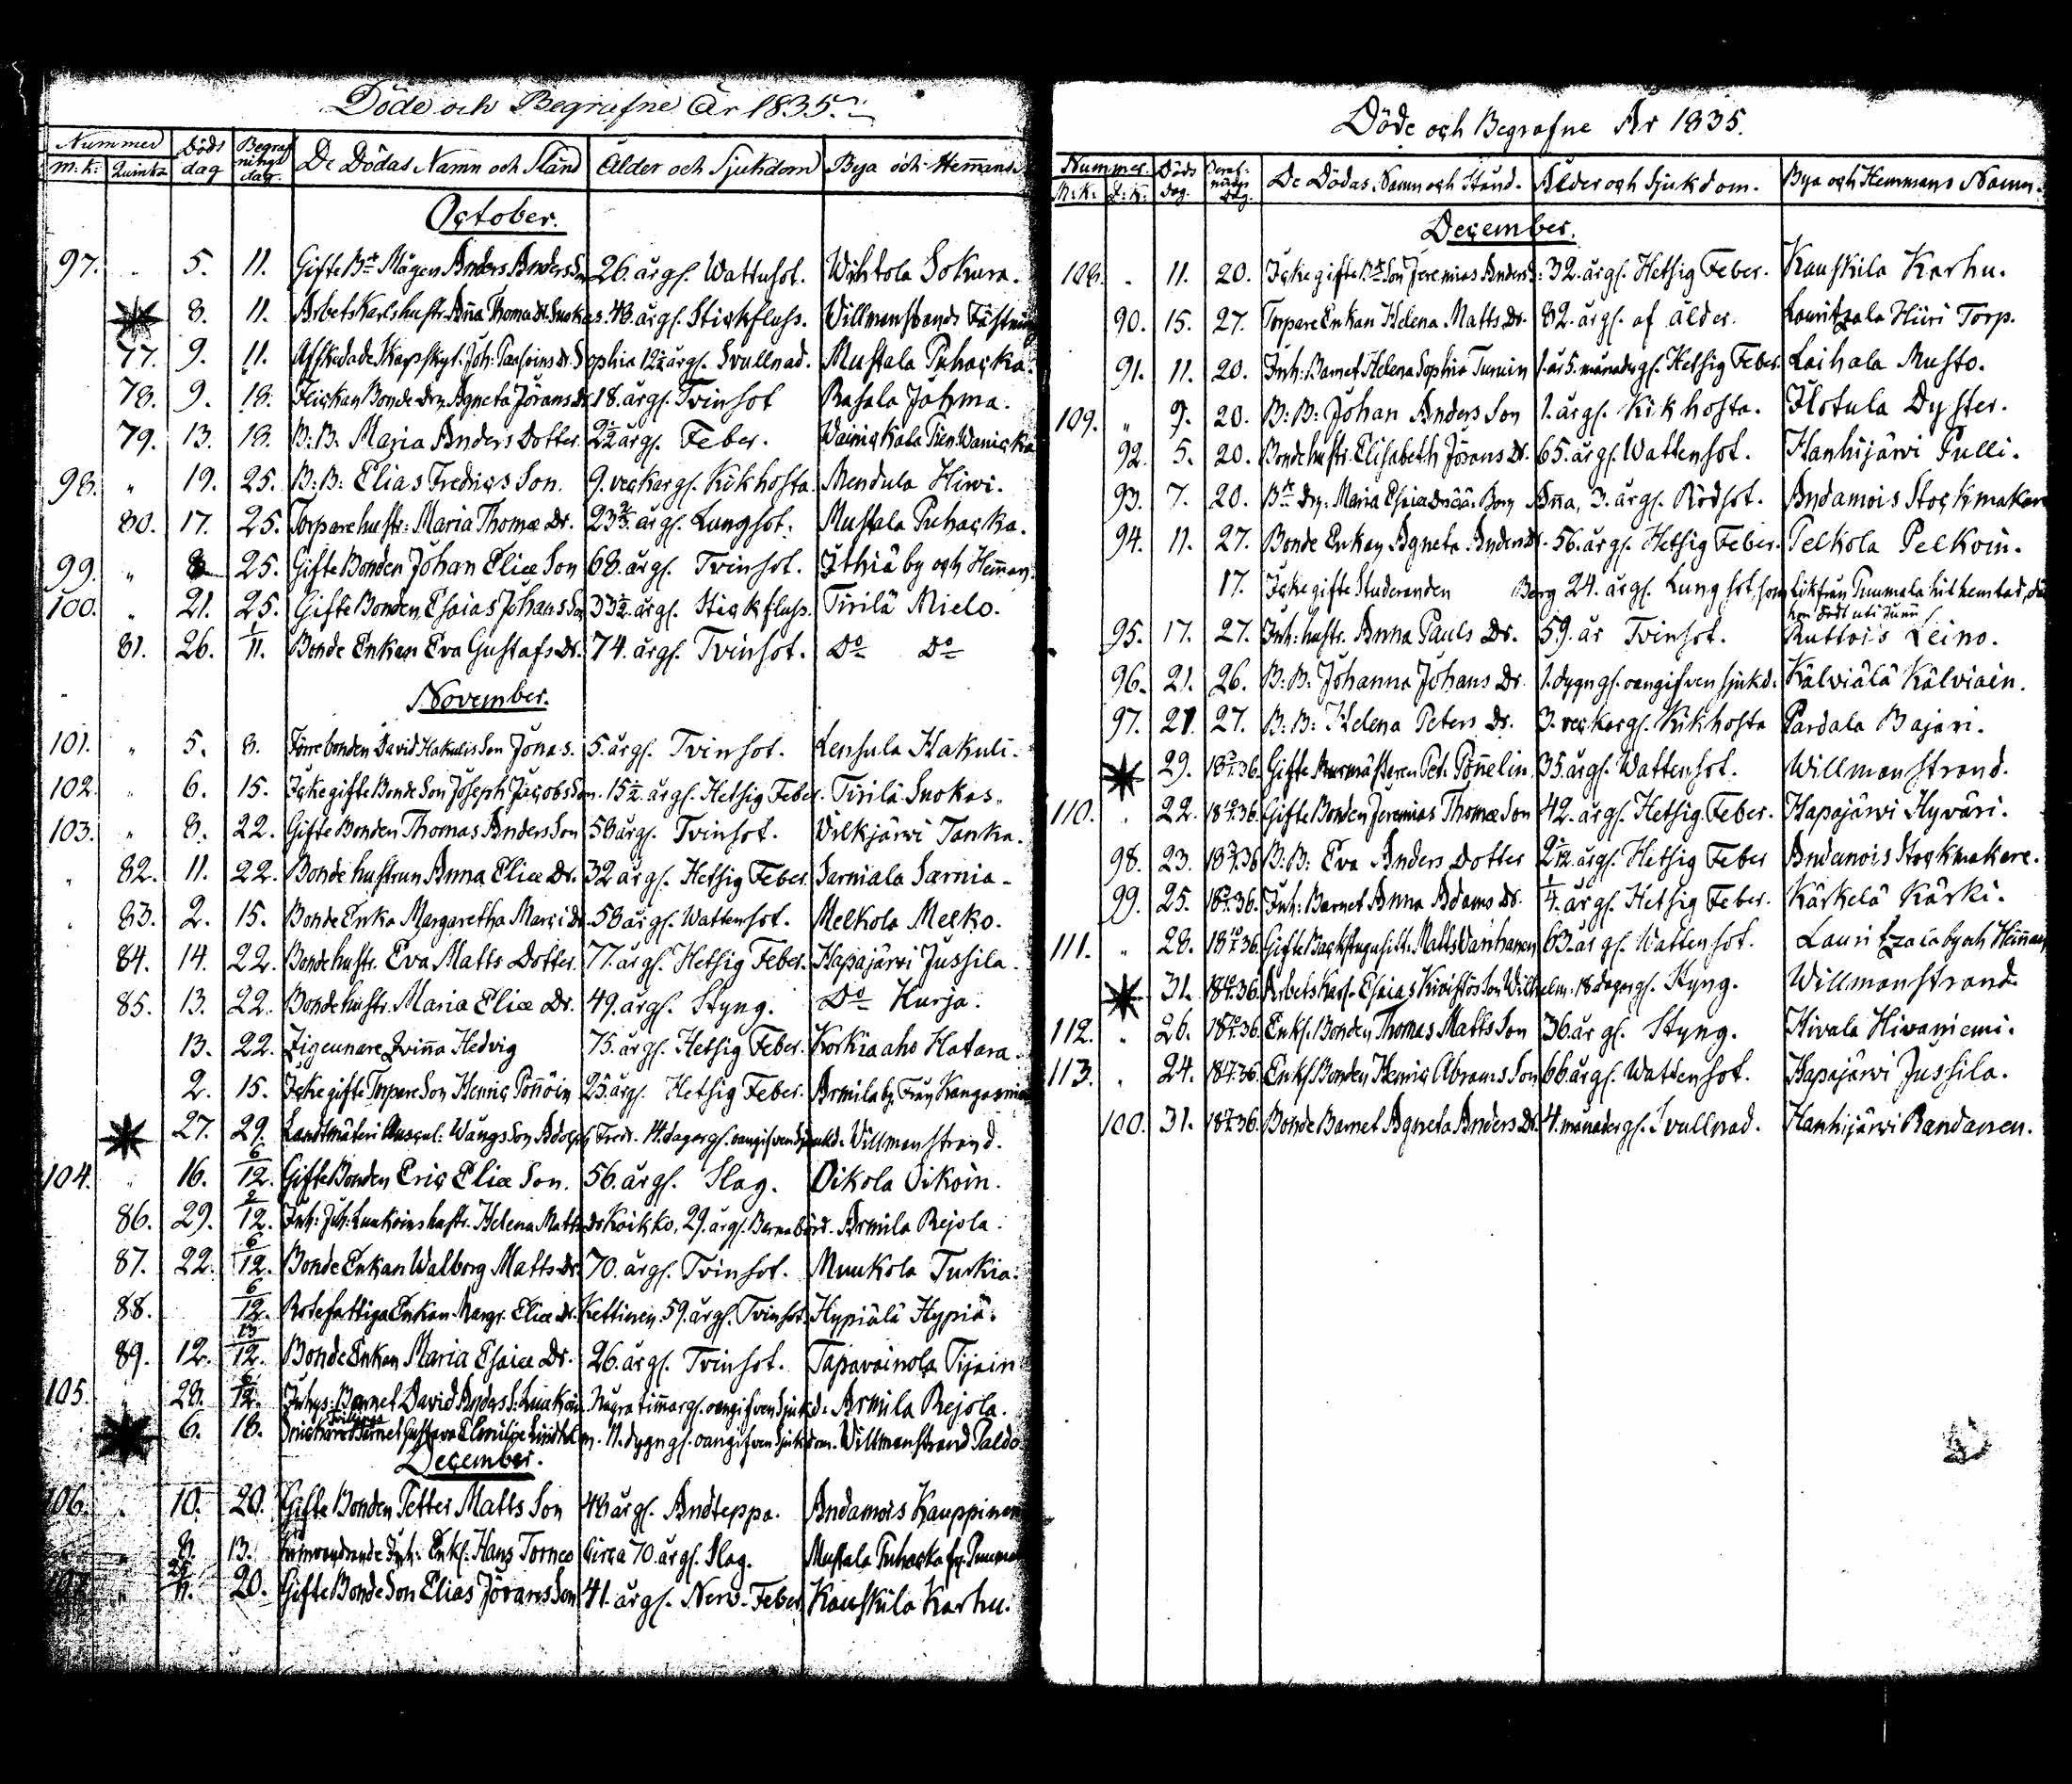 Döde och Begrafne År 1835.
Nummer Döds dag Begrafnings dag. De Dödas Namn och Stånd Ålder och Sjukdom Bya och Hemans
M:K: Quinkö
October.
97. " 5. 11. Gifte Bde Mågen Anders Anders Son 26. år gl. Wattusot. Wihtola Sokura.
8. 11. Arbets Karls hustr. Aña Thomæ Dr. Snokas. 48. år gl. Stickfluss. Willmanstrands Fästning
77. 9. 11. Afskedade Skarpskyt. Joh: Paasoins dr. Sophia 12½ år gl. Svullnad. Mustala Puhacka.
78. 9. 18. Flickan Bonde Drn Agneta Jörans Dr 18. år gl. Tvinsot Rasala Johma.
79. 13. 18. B: B: Maria Anders Dotter. 2½ år gl. Feber. Wainickala Pien Wanicka
98. " 19. 25. B: B: Elias Fredrics Son. 9. veckor gl. Kikhosta. Mendula Hirvi.
80. 17. 25. Torpare hustr: Maria Thomæ Dr. 23⅔ år gl. Lungsot. Mustala Puhacka.
99. " 8 25. Gifte Bonden Johan Eliæ Son 68. år gl. Tvinsot. Ithiä by och Heman.
100. " 21. 25. Gifte Bonden Esaias Johans Son 33½ år gl. Stickfluss. Tirilä Mielo.
81. 26. 1/11. Bonde Enkan Eva Gustafs Dr. 74. år gl. Tvinsot. Do Do
November.
101. " 5. 8. Förre bonden David Hakulis Son Jonas. 5. år gl. Tvinsot. Lensula Hakuli.
102. " 6. 15. Icke gifte Bonde Son Joseph Jacobs Son. 15½. år gl. Hetsig Feber. Tirilä Snokas.
103. " 8. 22. Gifte Bonden Thomas Anders Son 58 år gl. Tvinsot. Vilkjärvi Tanka.
" 82. 11. 22. Bonde hustrun Anna Eliæ Dr. 32 år gl. Hetsig Feber. Sarniala Sarnia.
" 83. 2. 15. Bonde Enka Margaretha Marci Dr. 58 år gl. Wattensot. Melkola Melko.
84. 14. 22. Bonde hustr. Eva Matts Dotter. 77. år gl. Hetsig Feber. Hapajärvi Jussila.
85. 13. 22. Bonde hustr. Maria Eliæ Dr. 49. år gl. Styng. Do Kurja.
13. 22. Zigeunare Qvinña Hedvig 75. år gl. Hetsig Feber. Korkiaaho Hatara.
2. 15. Icke gifte Torpare Son Henric Pöñöin 25. år gl. Hetsig Feber. Armila by. Från Kangasniemi
27. 29. Landtmäteri Auscul: Wångs Son Adolph Fredr. 14. dagar gl. oangifven sjukd. Willmanstrand.
104. " 16. 6/12. Gifte Bonden Eric Eliæ Son. 56. år gl. Slag. Oikola Oikoin.
86. 29. 2/12. Inh: Joh: Luukoins hustr. Helena Matts Dr Koikko, 29. år gl. Barnabörd. Armila Rejola.
87. 22. 6/12. Bonde Enkan Walborg Matts Dr. 70. år gl. Tvinsot. Muukola Turkia.
88. 6/12. Rotefattiga Enkan Margr. Eliæ Dr. Kettinen. 59. år gl. Tvinsot. Hypiälä Hypiä.
89. 12. 13/12. Bonde Enkan Maria Esaiæ Dr. 26. år gl. Tvinsot. Tapavainola Tijain
105. 28. 6/12. Inhys: Barnet David Anders S: Luukoin. Några timar gl. oangifven Sjukd. Armila Rejola.
6. 18. Tvillinge Barnet Gustava Emilie Lindholm. 11. dygn gl. oangifven sjukdom. Willmanstrand Paldo
December.
106. " 10. 20. Gifte Bonden Petter Matts Son 48 år gl. Andteppa. Andamois Kauppinen
8. 13. Inh: Enkl: Hans Torneo Circa 70. år gl. Slag. Mustala Puhacka fr.
11. 20. Gifte Bonde Son Elias Jörans Son 41. år gl. Nerv. Feber. Kauskila Karhu.
Döde och Begrafne År 1835.
Nummer. Döds dag. Begrafnings Dag. De Dödas Namn och Stånd. Ålder och Sjukdom. Bya och Hemmans Namn.
M:K: Q:K:
December.
108. " 11. 20. Icke gifte Bde Son Jeremias Anders S: 32. år gl. Hetsig Feber. Kauskila Karhu.
90. 15. 27. Torpare Enkan Helena Matts Dr. 82. år gl. af ålder. Lauritzala Hiiri Torp.
91. 11. 20. Inh: Barnet Helena Sophia Turuin 1. år 5. månader gl. Hetsig Feber. Laihala Musto.
109. " 9. 20. B: B: Johan Anders Son 1. år gl. Kikhosta. Ilotula Dyster.
92. 5. 20. Bonde hustr. Elisabeth Jörans Dr. 65. år gl. Wattensot. Hanhijärvi Pulli.
93. 7. 20. Bde Drn: Maria Esaiæ Drs oä: Barn Aña, 3. år gl. Rödsot. Andamois Stockmakare
94. 11. 27. Bonde Enkan Agneta Anders Dr. 56. år gl. Hetsig Feber. Pelkola Pelkoin.
17. Icke gifte Studeranden Berg 24. år gl. Lungsot, som likt från Puumala hit hemtad, då
han dödt uti Juni
95. 17. 27. Inh: hustr. Anna Pauls Dr. 59. år Tvinsot. Ruttois Leino.
96. 21. 26. B: B: Johanna Johans Dr. 1. dygn gl. oangifven sjukd: Kälviälä Kälviäin.
97. 21. 27. B: B: Helena Peters Dr. 3. veckor gl. Kikhosta Pardala Bajari.
29. 18 36. Gifte Murmästeren Pet. Pöñelin 35. år gl. Wattensot. Willmanstrand.
110. " 22. 18 36. Gifte Bonden Jeremias Thomæ Son 42. år gl. Hetsig Feber. Hapajärvi Hyväri.
98. 23. 18 36. B: B: Eva Anders Dotter 2 /12. år gl. Hetsig Feber Andamois Stockmakare.
99. 25. 18 36. Inh: Barnet Anna Adams Dr. ¼. år gl. Hetsig Feber. Kärkelä Kärki.
111. " 28. 18 36. Gifte Backstugusitt: Matts Vanhanen 63. år gl. Wattensot. Lauritzala by och Heman
31. 18 36. Arbets Karl Esaias Kivistös Son Wilhelm. 18 dagar gl. Styng. Willmanstrand.
112. " 26. 18 36. Enkl. Bonden Thomas Matts Son 36. år gl. Styng. Hivala Hivaniemi.
113. " 24. 18 36. Enkl. Bonden Henric Abrams Son 66. år gl. Wattensot. Hapajärvi Jussila.
100. 31. 18 36. Bonde Barnet Agneta Anders Dr. 4. månader gl. Svullnad. Hanhijärvi Randanen.